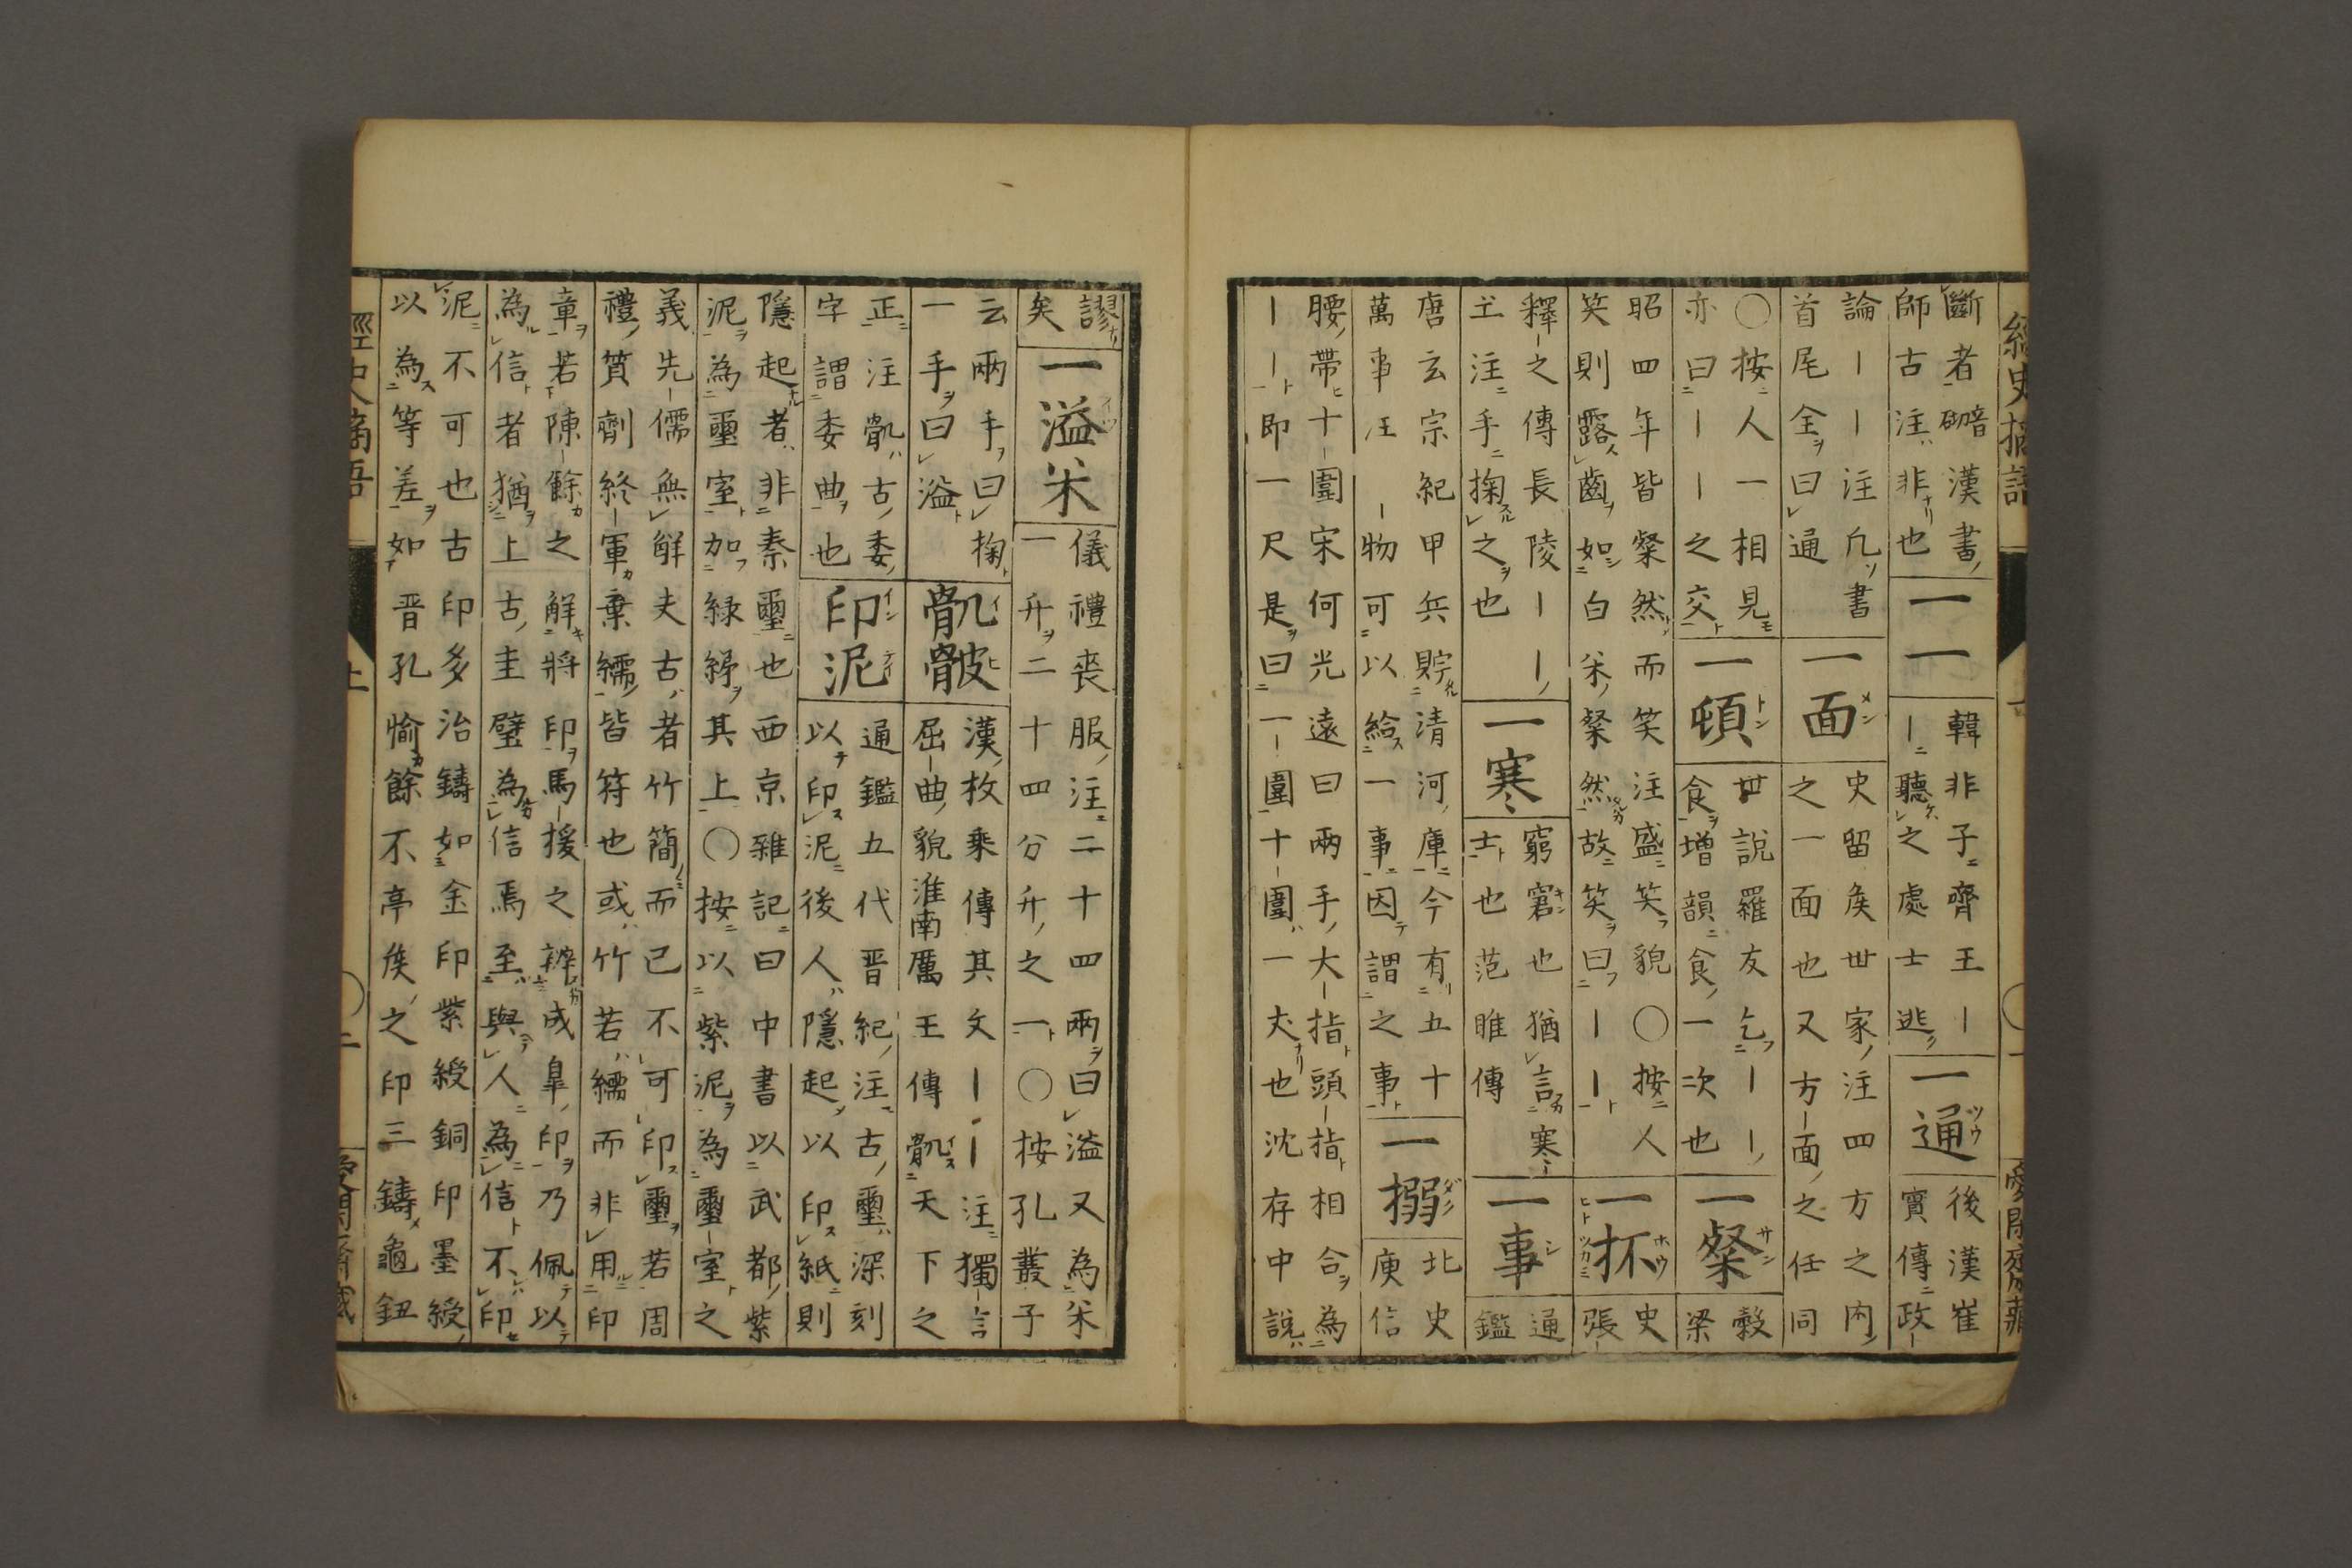 經史摘語
斷者礌漢書
師古注非也
一一
韓非子齊王｜
｜聽之處士逃
一通
後漢崔
寔傳政
論｜｜注凡書
首尾全曰通
一面
史留矦世家注四方之内
之一面也又方面之任同
〇按人一相見
亦曰｜｜之交
一頓
世說羅友乞｜｜
食增韻食一次也
一粲
穀
梁
昭四年皆粲然而笑注盛笑貌〇按人
笑則露齒如白米粲然故笑曰｜｜
一抔
史
張
釋之傳長陵｜｜
主注手掬之也
一寒
窮窘也猶言寒
士也范睢傳
一事
通
鑑
唐玄宗紀甲兵貯清河庫今有五十
萬事注｜物可以給一事因謂之事
一搦
北史
庾信
腰帶十圍宋何光遠曰兩手大指頭指相合為
｜｜即一尺是曰一圍十圍一丈也沈存中説
謬
矣
一溢米
儀禮喪服注二十四兩曰溢又為米
一升二十四分升之一〇按孔叢子
云兩手曰掬
一手曰溢
骩骳
漢枚乘傳其文｜｜注獨言
屈曲貌淮南厲王傳骩天下之
正注骩古委
字謂委曲也
印泥
通鑑五代晋紀注古璽深刻
以印泥後人隱起以印紙則
隱起者非秦璽也西京雜記曰中書以武都紫
泥為璽室加緑綈其上〇按以紫泥為璽室之
義先儒無解夫古者竹簡而已不可印璽若周
禮質劑終軍棄繻皆符也或竹若繻而非用印
章若陳餘之解將印馬援之辯成皐印乃佩以
為信者猶上古圭璧為信焉至與人為信不印
泥不可也古印多冶鑄如金印紫綬銅印墨綬
以為等差如晋孔愉餘不亭矦之印三鑄龜鈕
經史摘語
上